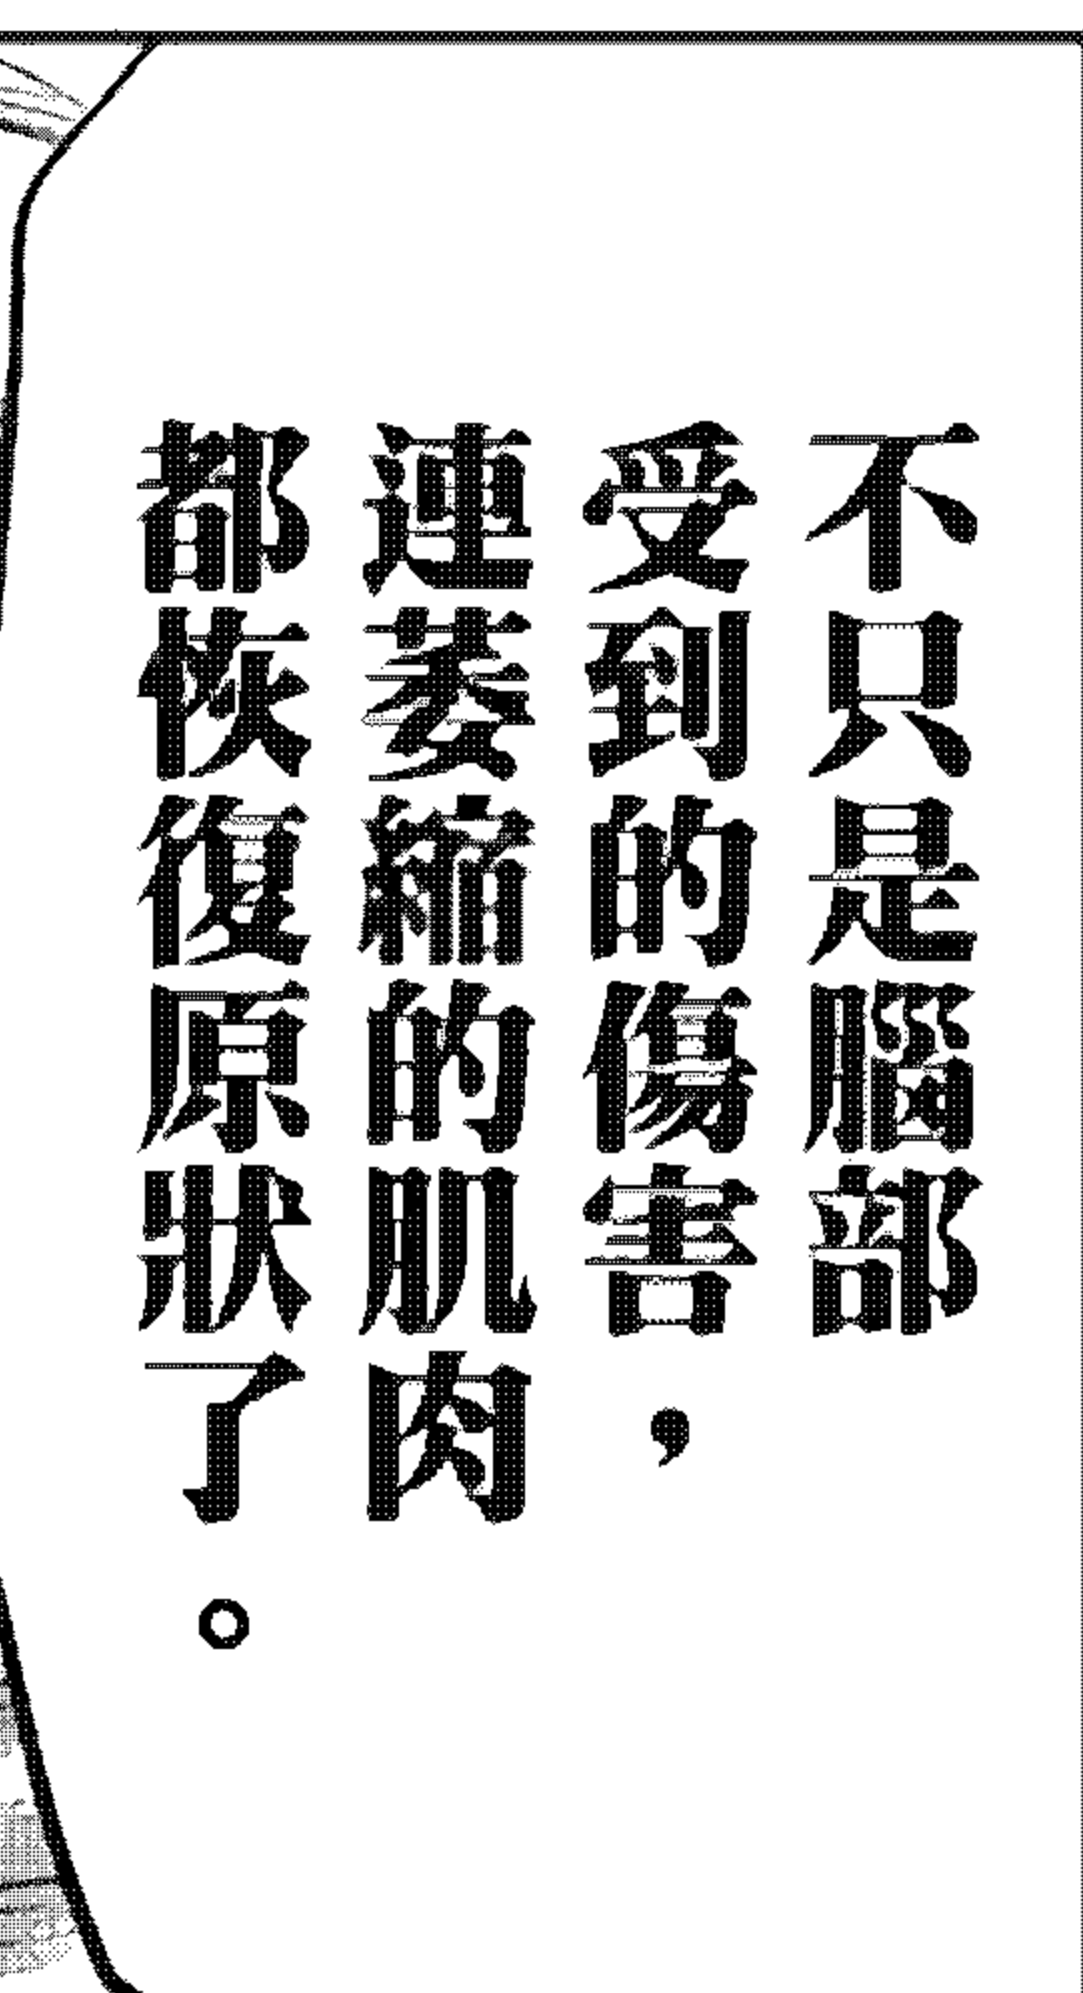 不只是腦部
受到的傷害，
連萎縮的肌肉
都恢復原狀了。